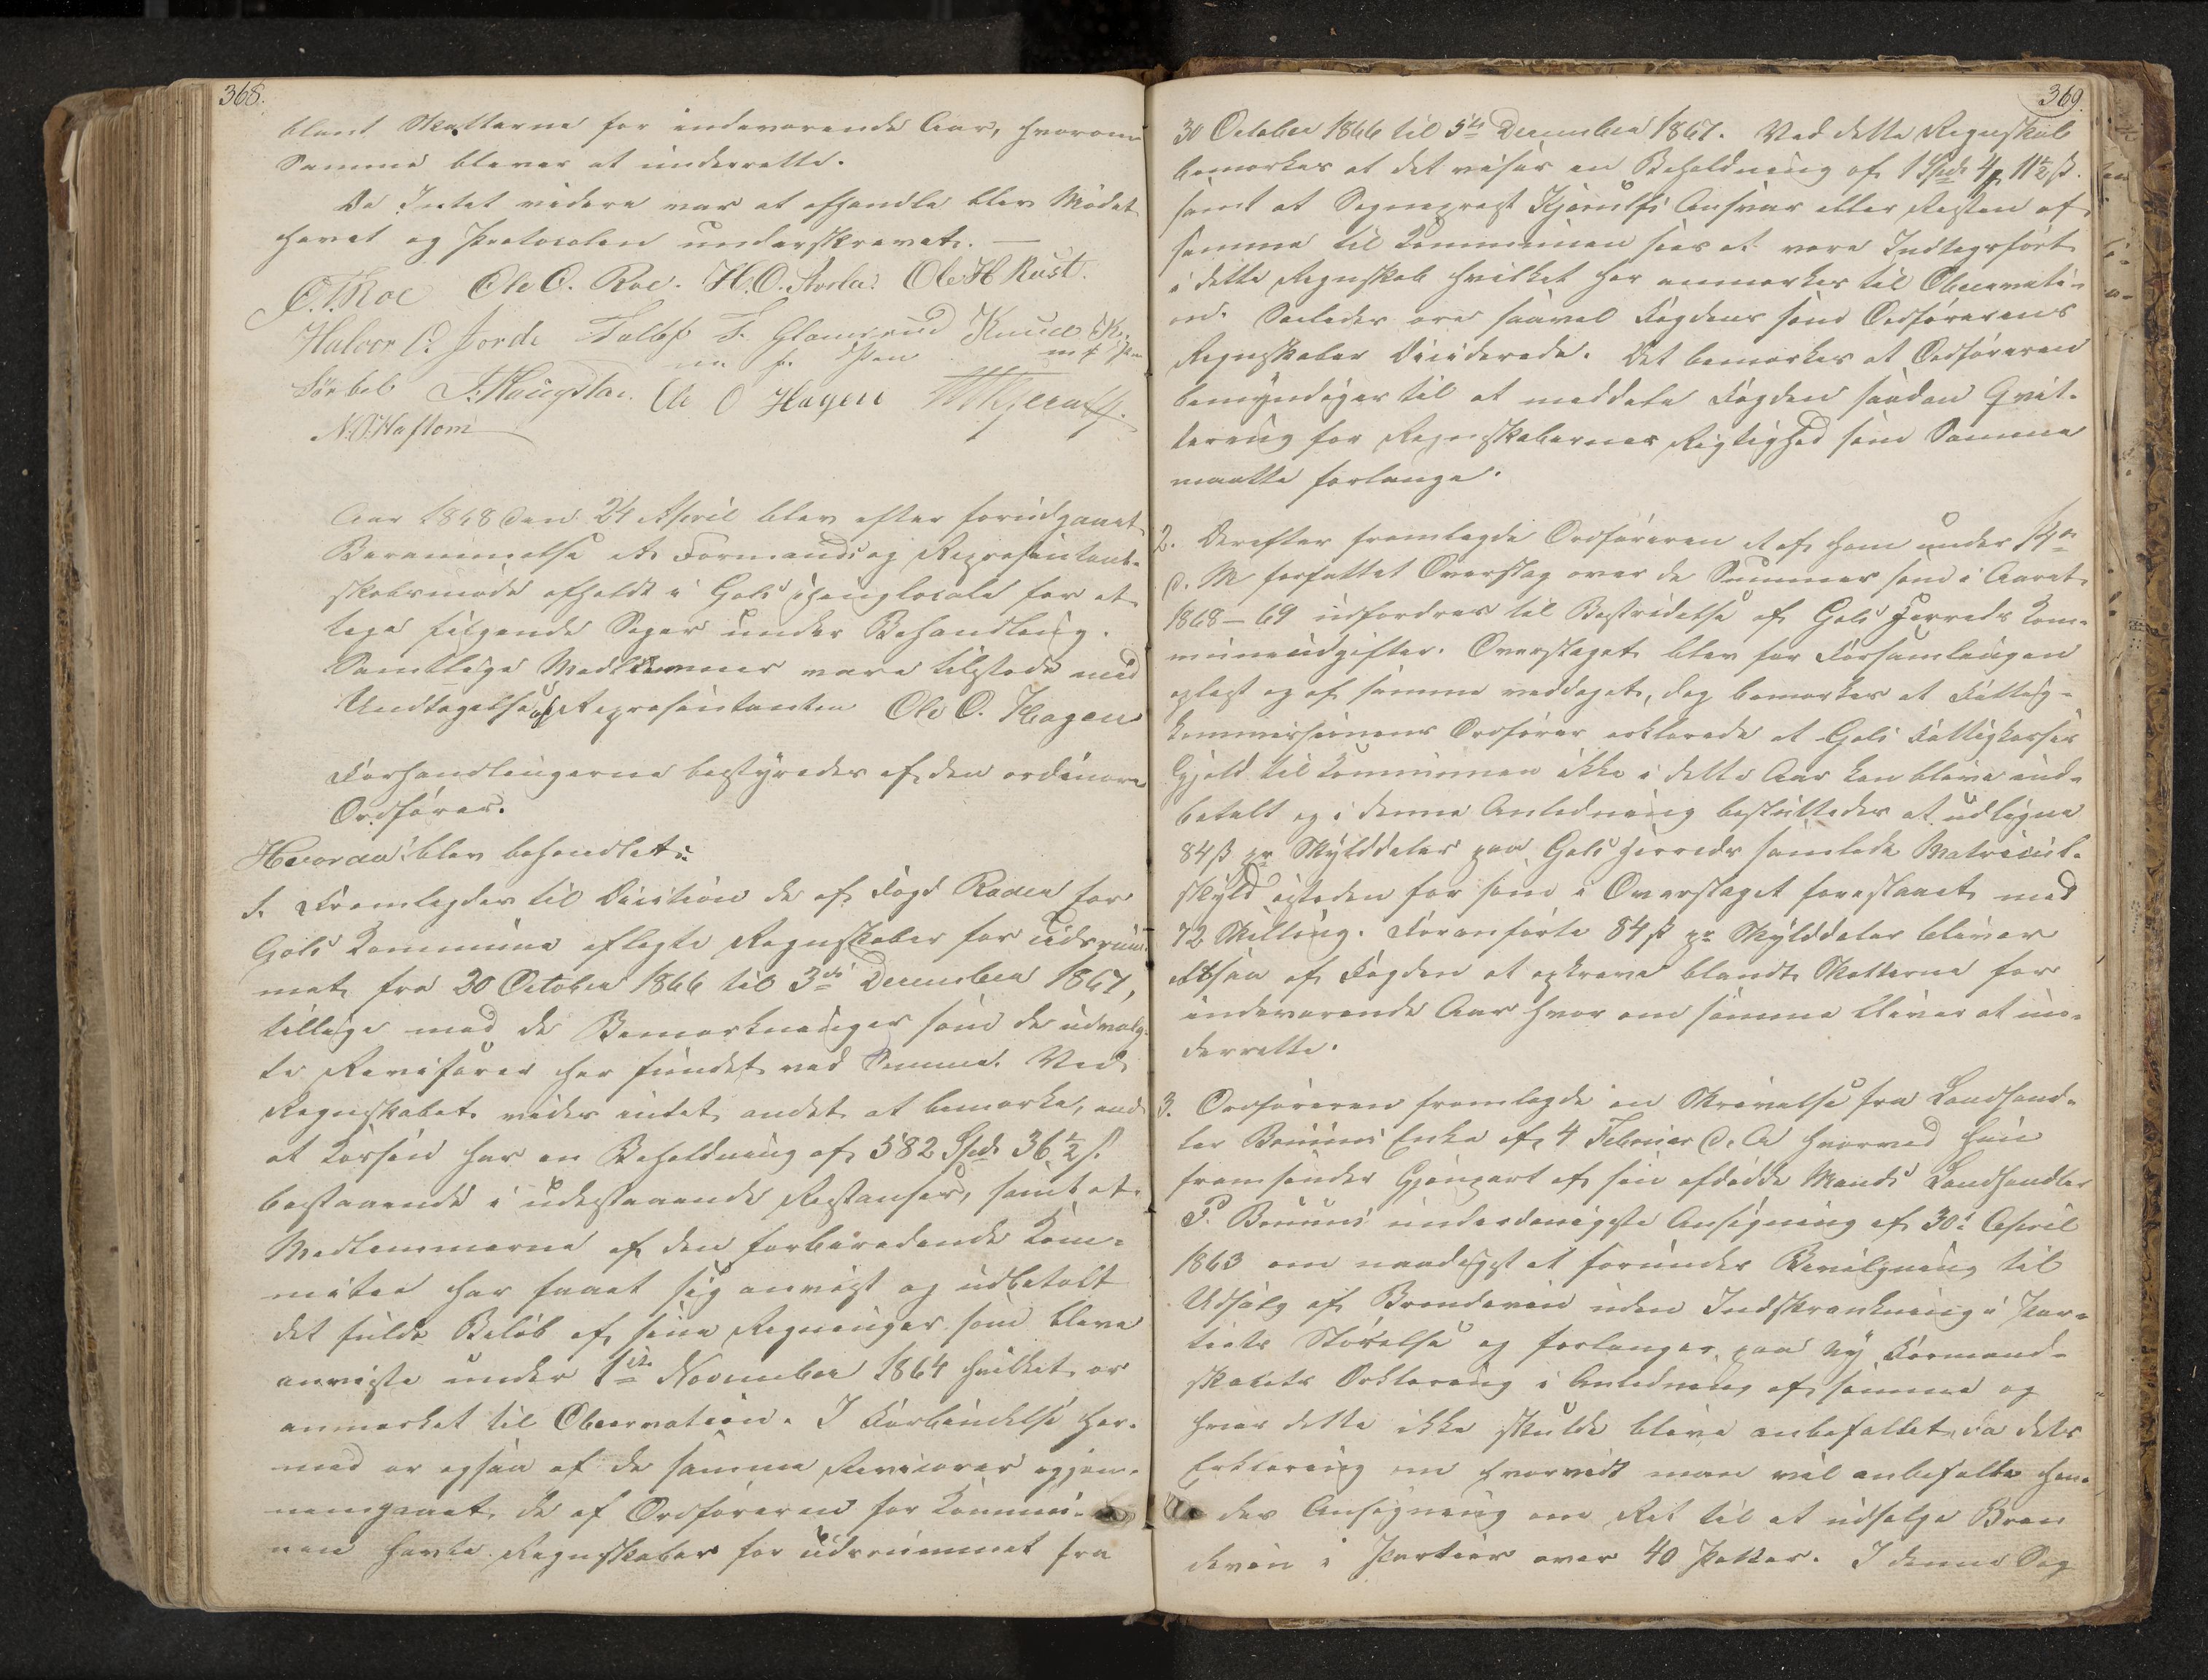 368.
blant Skatterne for indeværende Aar, hvorom
Samme bliver at underrette.
Da Intet videre var at afhandle blev Mødet
hævet og Protocolen underskrevet. —
O.T. Roe Ole O. Roe. H.O. Storla. Ole H Rust.
Halvor O. Jorde T. Glomsrud Knud
m. f. Pen m f Pen
Sørbel Ole O Hagen
Aar 1868 den 24 April blev efter forudgaaet
Berammelse et Formands og Repræsentant-
skabsmøde afholdt i Gols Thinglocale for at
tage følgende Sager under Behandling.
Samtlige Medlemmer vare tilstede med
Undtagelse af Repræsentanten Ole O. Hagen
Forhandlingerne bestyredes af den ordinære
Ordfører.
Hvorda blev behandlet:
1. Fremlagdes til Decition de af Fogd Rader for
Gols Kommune aflagte Regnskaber for Tidsrum-
met fra 20 October 1866 til 3die December 1867,
tillige med de Bemærkninger som de udvalg-
te Revisorer har fundet ved Samme. Ved
Regnskabet vides intet andet at bemærke, end
at Kassen har en Beholdning af 582 Spd. 36½ s.
bestaaende i udestaaende Restanser, samt at
Medlemmerne af den forberedende Kom-
mitee har faaet sig anvist og udbetalt
det fulde Beløb af sine Regninger som bleve
anviste under 1ste November 1864 hvilket er
anmærket til Observation. I Forbindelse her-
med er ogsaa af de samme Revisorer igjen-
nemgaaet, de af Ordføreren for Kommu-
nen førte Regnskaber for Tidsrummet fra
369.
30 October 1866 til 5te December 1867. Ved dette Regnskab
bemærkes at det viser en Beholdning af 1 Spd. 4 11½ ß.
samt at Sogneprest Kjerulfs Ansvar eller Resten af
samme til Kommunen sees at være Indtægtsført
i dette Regnskab hvilket her anmærkes til Observati-
on. Saaledes ere saavel Fogdens som Ordførerens
Regnskaber Deciderede. Det bemærkes at Ordføreren
bemyndiges til at meddele Fogden saadan Qvit-
tering for Regnskabernes Rigtighed som Samme
maatte forlange.
2. Derefter fremlagde Ordføreren et af ham under
d. M forfattet Overslag over de Summer som i Aaret
1868–69 udfordres til Bestridelse af Gols Herreds Kom-
muneudgifter. Overslaget blev for Forsamlingen
oplæst og af samme vedtaget, dog bemærkes at Fattig-
kommissionens Ordfører erklærede at Gols Fattigkasses
Gjeld til Kommunen ikke i dette Aar kan blive ind-
betalt og i denne Anledning besluttedes at udligne
84 ß pr Skylddaler paa Gols Herreds samlede Matricul-
skyld isteden for som i Overslaget foreslaaet med
72 Skilling. Foranførte 84 ß pr Skylddaler bliver
altsaa af Fogden at opkræve blandt Skatterne for
indeværende Aar hvor om samme bliver at un-
derrette.
3. Ordføreren fremlagde en Skrivelse fra Landhand-
ler Bruuns Enke af 4 Februar d. A hvorved hun
fremsender Gjenpart af sin afdøde Mands Landhandler
P. Bruuns underdanigste Ansøgning af 30te April
1863 om naadigst at forundes Bevilgning til
Udsalg af Brændeviin uden Indskrænkning i Par-
tiets Størrelse og forlanger paa ny Formand-
skabets Erklæring i Anledning af samme og
hvis dette ikke skulde blive anbefallet, da dets
Erklæring om hvorvidt man vil anbefalle hen-
des Ansøgning om Ret til at udsælge Bræn
deviin i Partier over 40 Potter. I denne Sag